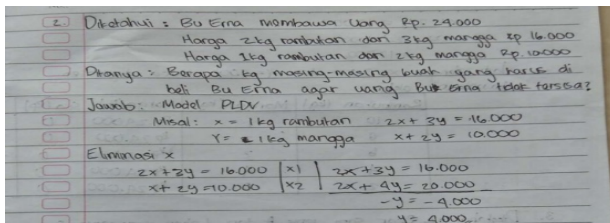 2. Diketahui : Bu Erna membawa uang Rp. 24.000
Harga 2kg rambutan dan 3kg mangga Rp 16.000
Harga 1kg rambutan dan 2kg mangga Rp. 10.000
Ditanya : Berapa kg masing-masing buah yang harus di
beli Bu Erna agar uang Bu Erna tidak tersisa?
Jawab : Model PLDV
Misal : x = 1kg rambutan 2x + 3y = 16.000
Y = 1kg mangga x + 2y = 10.000
Eliminasi x
2x + 3y = 16.000 | x1 | 2x + 3y = 16.000
x + 2y = 10.000 | x2 | 2x + 4y = 20.000
-y = -4.000
y = 4.000